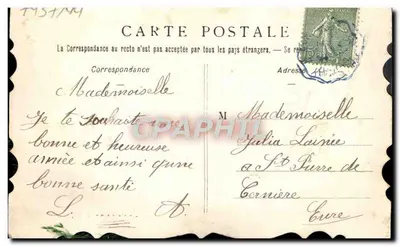 CARTE POSTALE
La Correspondance au recto n'est pas acceptée par tous les pays étrangers. — Se
Correspondance
Adresse
Mademoiselle
Je te souhaite une
bonne et heureuse
année et ainsi qu'une
bonne santé
L. ........ A.
M Mademoiselle
Julia Lainée
a St Pierre de
Cernière
Eure
CPAPHIL